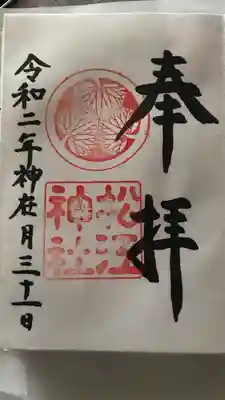 奉拝
松江
神社
令和二年神在月三十一日